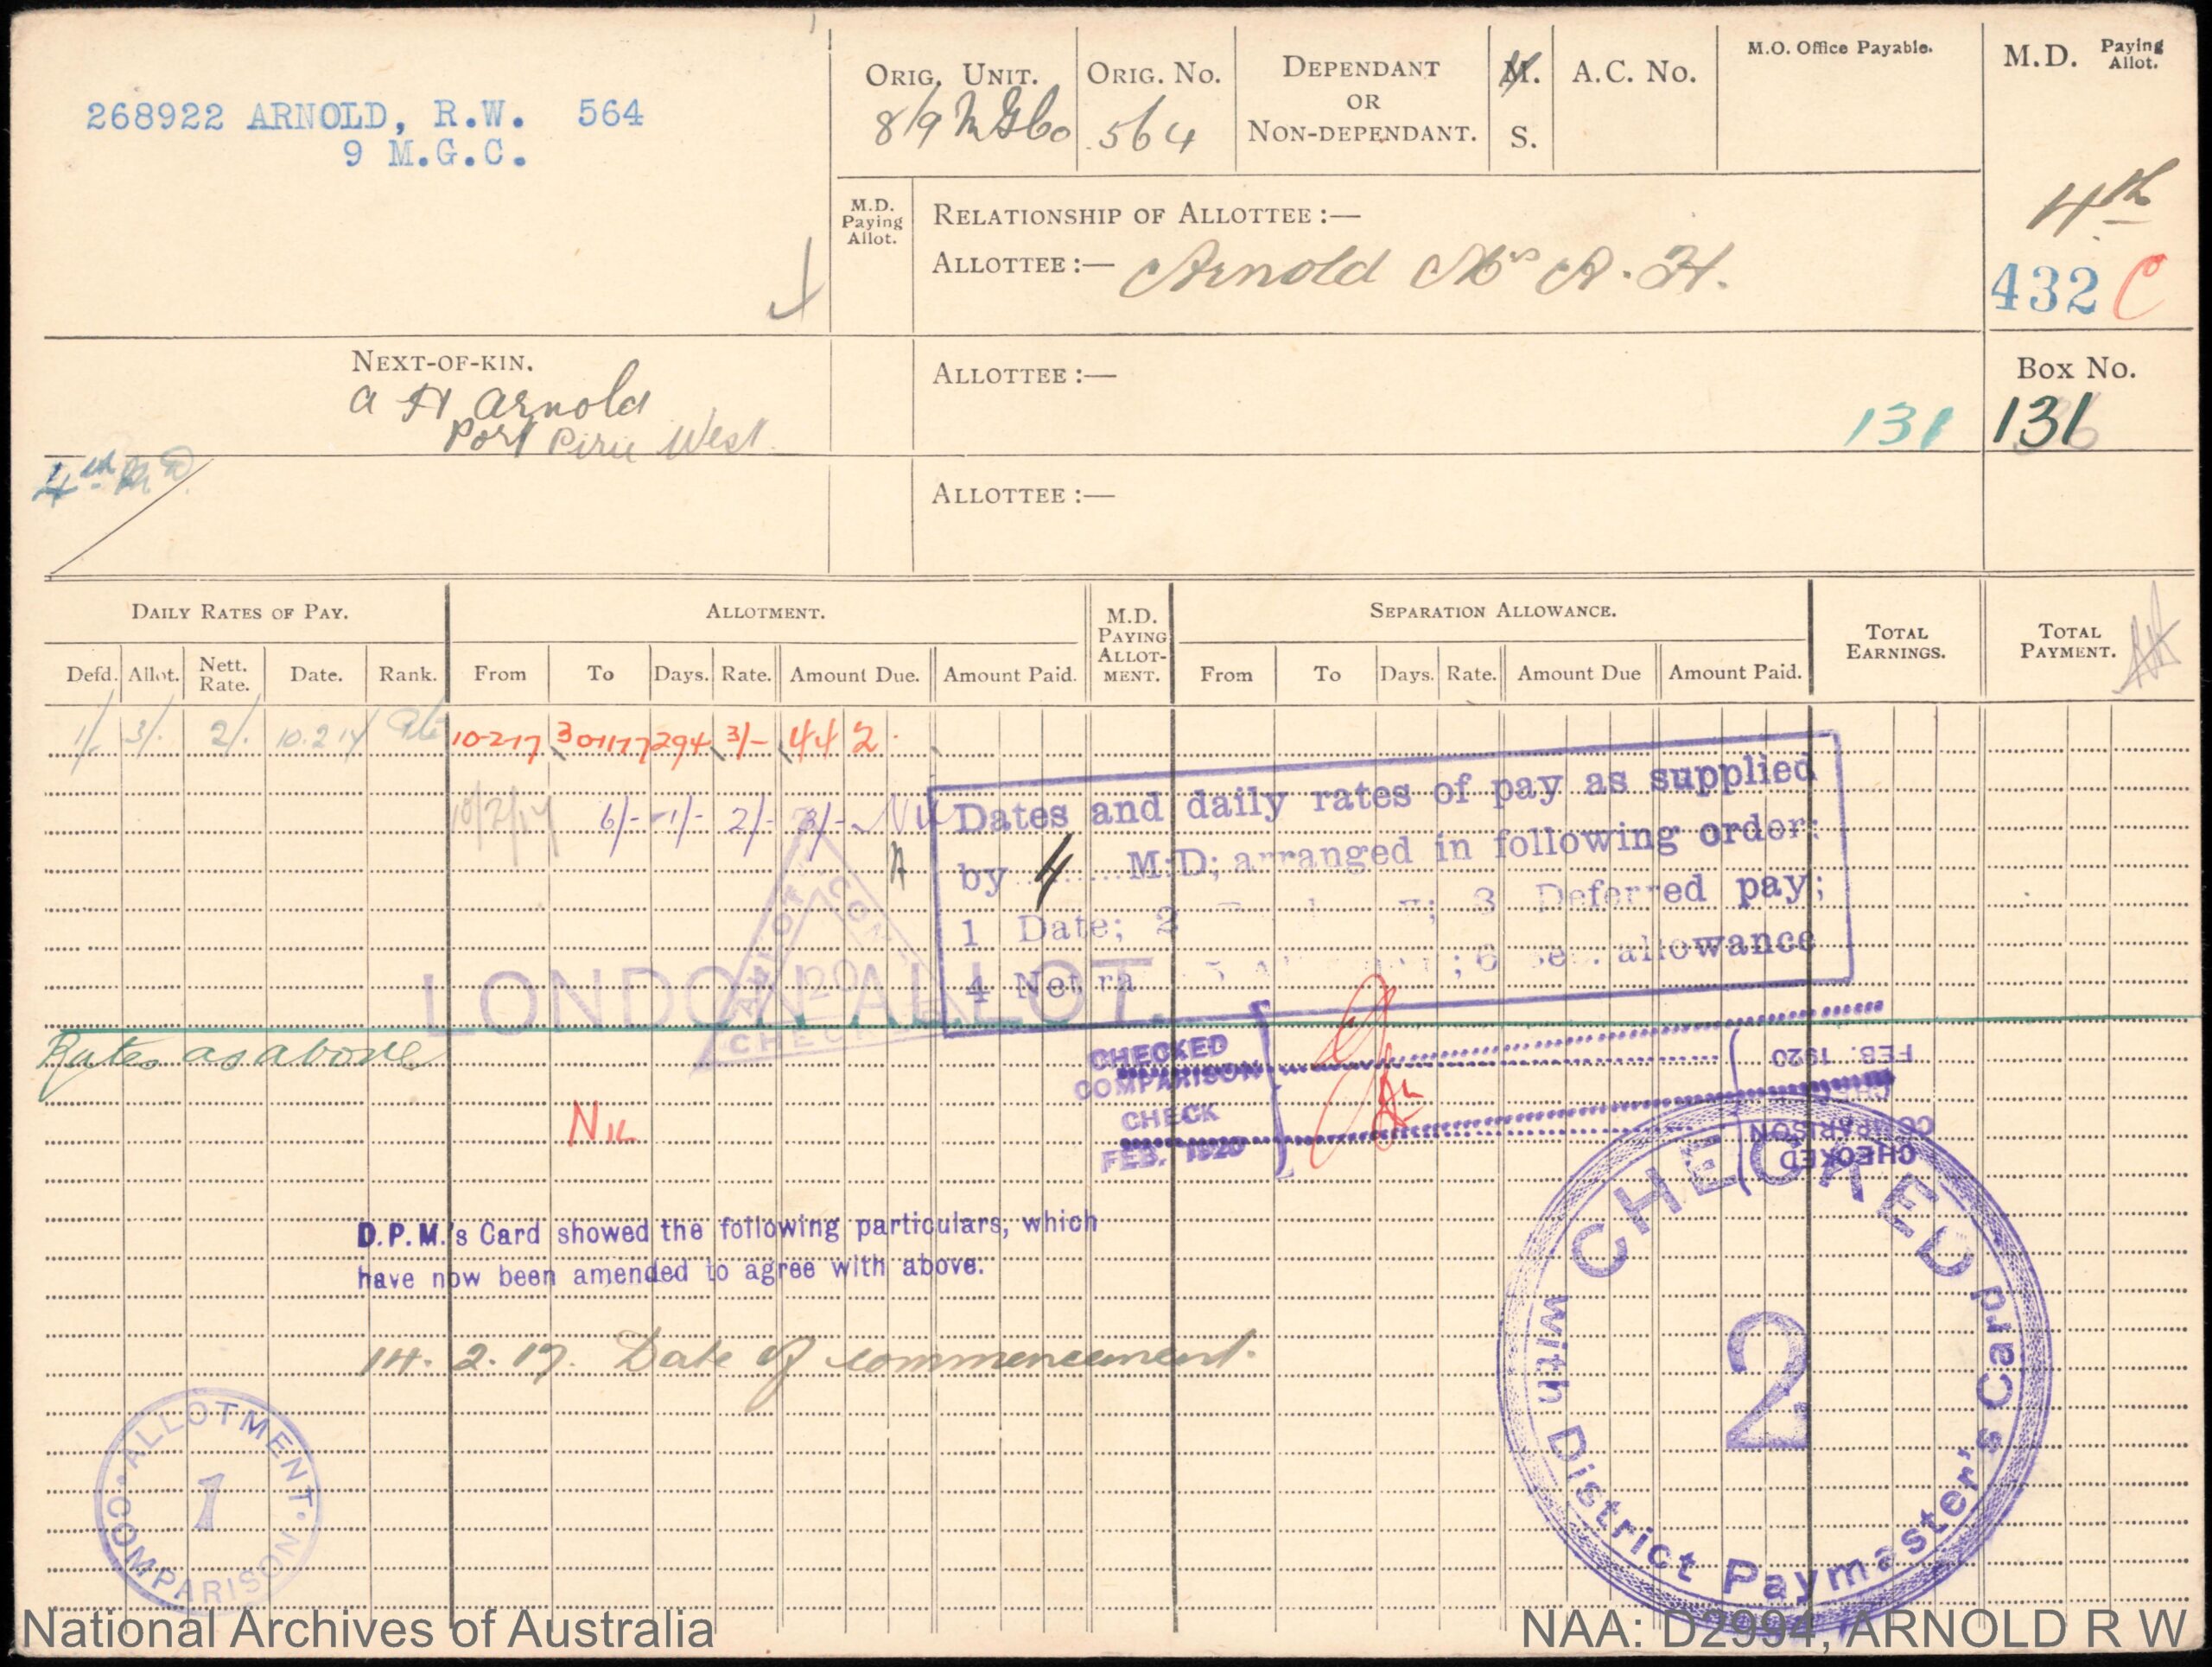 268922 ARNOLD, R.W. 564
9 M.G.C.
ORIG. UNIT.
8/9 M G Co
ORIG. NO.
564
DEPENDANT
OR
NON-DEPENDANT.
M.
S.
A.C. NO.
M.O. Office Payable.
M.D. Paying Allot.
4th
432 C
M.D. Paying Allot.
RELATIONSHIP OF ALLOTTEE :—
ALLOTTEE :— Arnold Mrs A. H.
NEXT-OF-KIN.
A H Arnold
Port Pirie West
ALLOTTEE :—
131
BOX NO.
131
4th M D
ALLOTTEE :—
DAILY RATES OF PAY.
ALLOTMENT.
M.D. PAYING ALLOT-MENT.
SEPARATION ALLOWANCE.
TOTAL EARNINGS.
TOTAL PAYMENT.
Defd. Allot. Nett. Rate. Date. Rank. From To Days. Rate. Amount Due. Amount Paid. From To Days. Rate. Amount Due Amount Paid.
1/- 3/- 2/- 10.2.17 Pte 10-2-17 30 11 17 294 3/- 44 2
10/2/17 6/- 1/- 2/- 3/- Nil
Dates and daily rates of pay as supplied
by 4 M.D; arranged in following order:
1 Date; 2 3 Deferred pay;
4 Net ra 5 ; 6 Sep. allowance
ALLOT COM
20
CHECK
LONDON ALLOT.
Rates as above
CHECKED
COMPARISON
CHECK
FEB. 1920
CHECKED
COMPARISON
FEB. 1920
Nil
D.P.M.'s Card showed the following particulars, which
have now been amended to agree with above.
14. 2. 17. Date of commencement.
ALLOTMENT
1
COMPARISON
CHECKED
2
with District Paymaster's Card
National Archives of Australia
NAA: D2994, ARNOLD R W